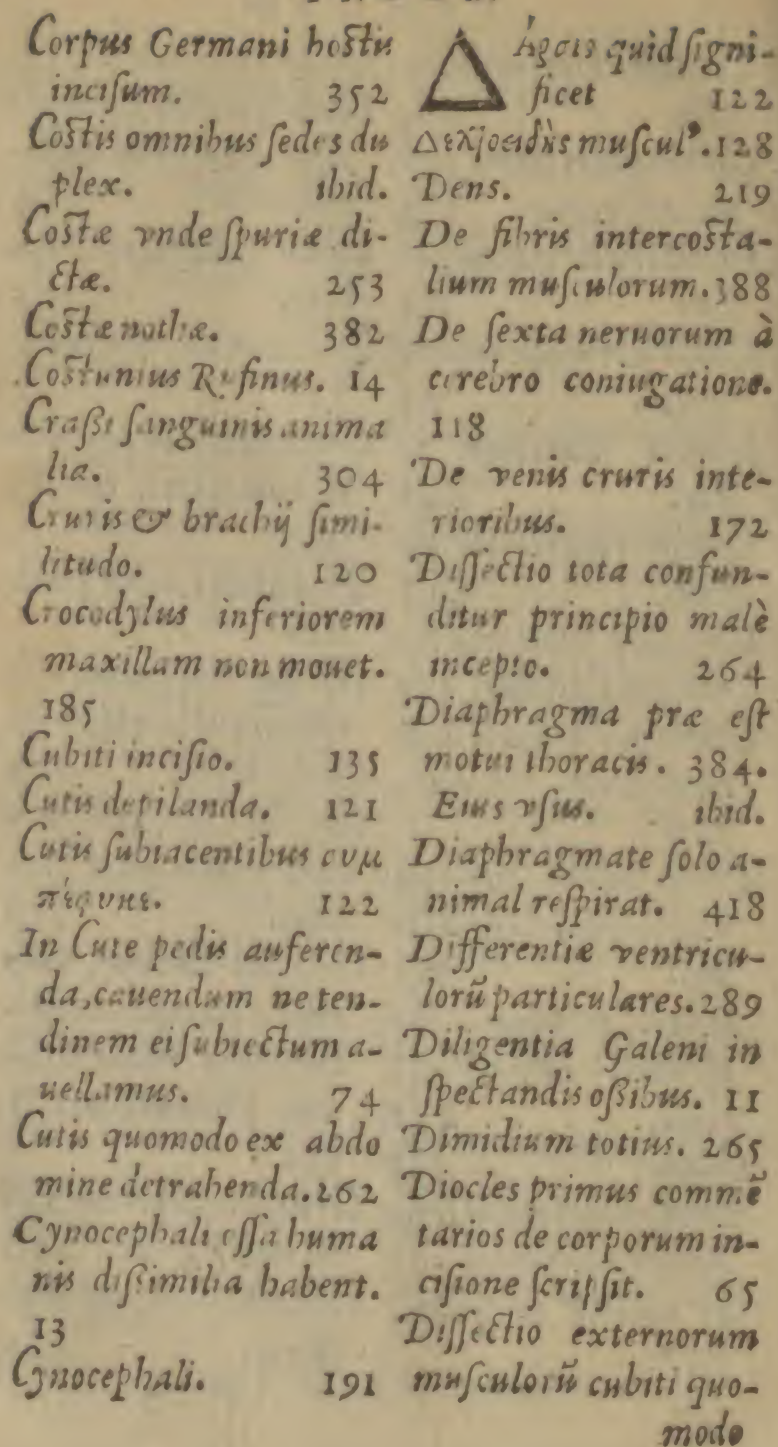 Corpus Germani hostis
incisum. 352
Costis omnibus sedes du
plex. ibid.
Costæ vnde spuriæ di-
ctæ. 253
Costæ nothæ. 382
Costunius Rufinus. 14
Crassi sanguinis anima
lia. 304
Cruris & brachij simi-
litudo. 120
Crocodylus inferiorem
maxillam non mouet.
185
Cubiti incisio. 135
Cutis depilanda. 121
Cutis subiacentibus
122
In Cute pedis auferen-
da, cauendum ne ten-
dinem ei subiectum a-
uellamus. 74
Cutis quomodo ex abdo
mine detrahenda. 262
Cynocephali ossa huma
nis dissimilia habent.
13
Cynocephali. 191
Δ quid signi-
ficet 122
muscul⁹. 128
Dens. 219
De fibris intercosta-
lium musculorum. 388
De sexta neruorum à
cerebro coniugatione.
118
De venis cruris inte-
rioribus. 172
Dissectio tota confun-
ditur principio malè
incepto. 264
Diaphragma præ est
motui thoracis. 384.
Eius vsus. ibid.
Diaphragmate solo a-
nimal respirat. 418
Differentiæ ventricu-
lorũ particulares. 289
Diligentia Galeni in
spectandis ossibus. 11
Dimidium totius. 265
Diocles primus commẽ
tarios de corporum in-
cisione scripsit. 65
Dissectio externorum
musculorũ cubiti quo-
modo